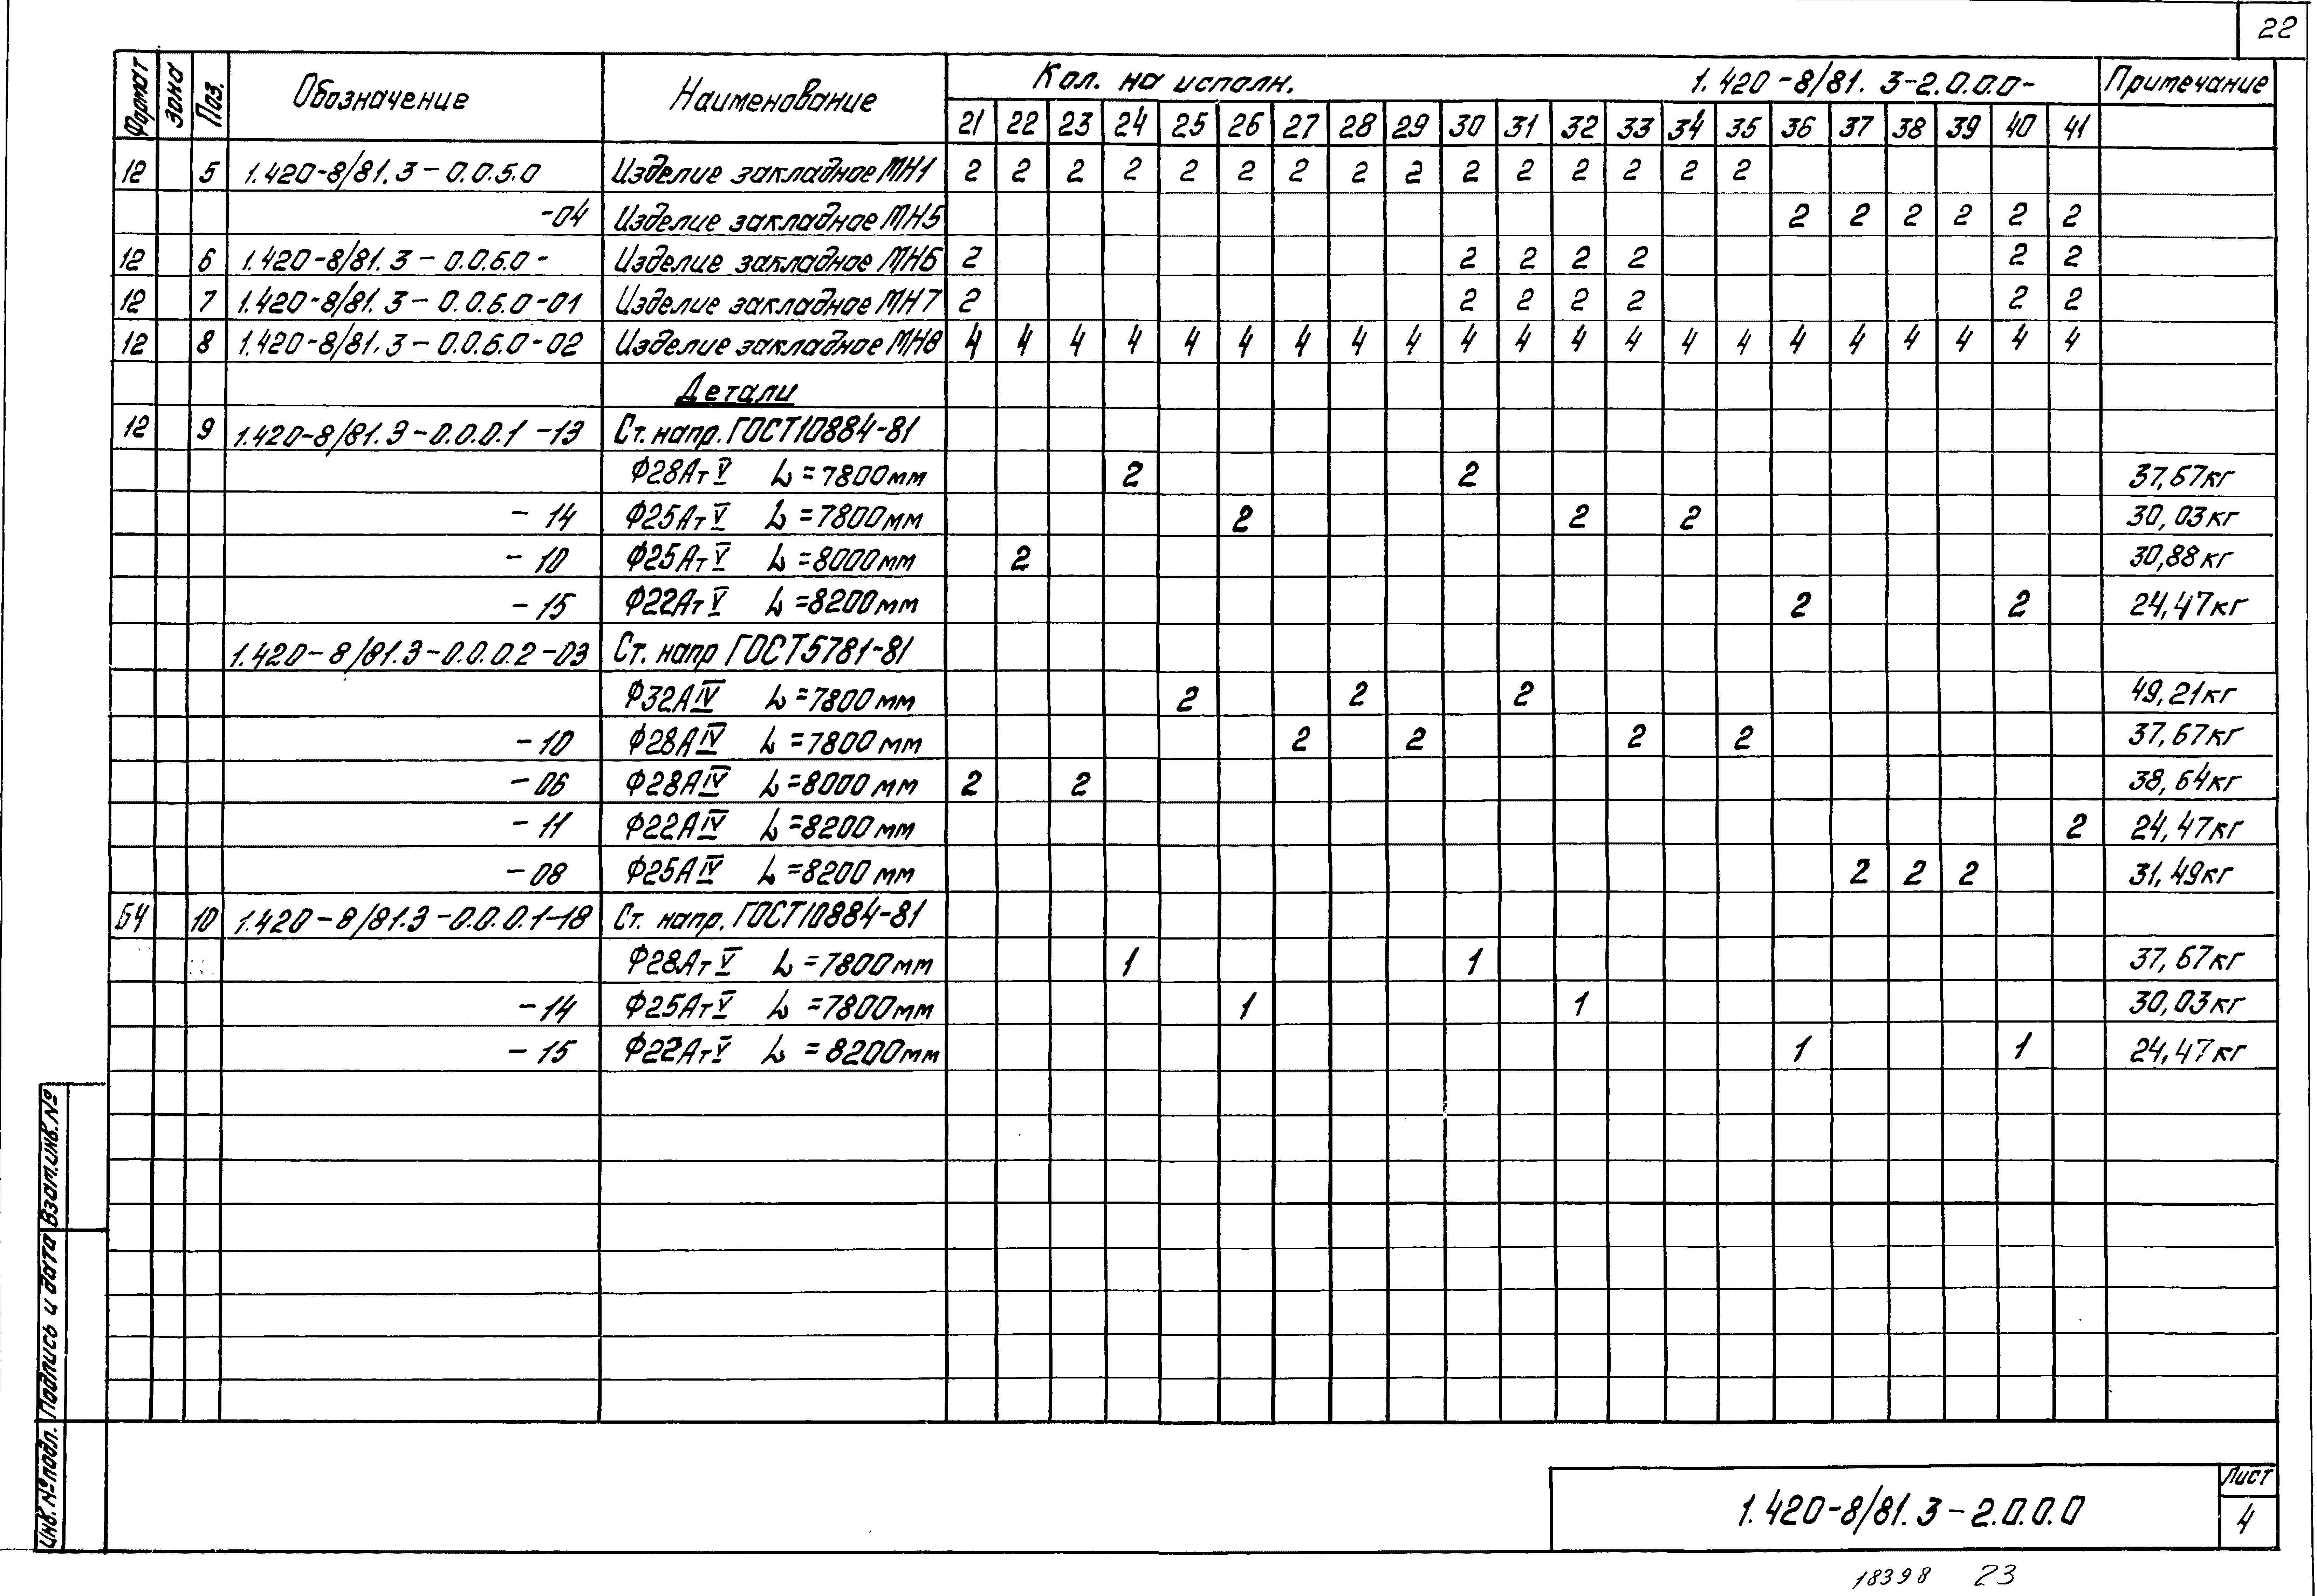 22
Формат Зона Поз. Обозначение Наименование Кол. на исполн. 1.420-8/81.3-2.0.0.0- Примечание
21 22 23 24 25 26 27 28 29 30 31 32 33 34 35 36 37 38 39 40 41
12 5 1.420-8/81.3-0.0.5.0 Изделие закладное МН1 2 2 2 2 2 2 2 2 2 2 2 2 2 2 2
-04 Изделие закладное МН5 2 2 2 2 2 2
12 6 1.420-8/81.3-0.0.6.0- Изделие закладное МН6 2 2 2 2 2 2 2
12 7 1.420-8/81.3-0.0.6.0-01 Изделие закладное МН7 2 2 2 2 2 2 2
12 8 1.420-8/81.3-0.0.6.0-02 Изделие закладное МН8 4 4 4 4 4 4 4 4 4 4 4 4 4 4 4 4 4 4 4 4 4
Детали
12 9 1.420-8/81.3-0.0.0.1-13 Ст. напр. ГОСТ10884-81
Ф28АтV L=7800мм 2 2 37,67кг
-14 Ф25АтV L=7800мм 2 2 2 30,03кг
-10 Ф25АтV L=8000мм 2 30,88кг
-15 Ф22АтV L=8200мм 2 2 24,47кг
1.420-8/81.3-0.0.0.2-03 Ст. напр ГОСТ5781-81
Ф32АIV L=7800мм 2 2 2 49,21кг
-10 Ф28АIV L=7800мм 2 2 2 2 37,67кг
-06 Ф28АIV L=8000мм 2 2 38,64кг
-11 Ф22АIV L=8200мм 2 24,47кг
-08 Ф25АIV L=8200мм 2 2 2 31,49кг
БЧ 10 1.420-8/81.3-0.0.0.1-18 Ст. напр. ГОСТ10884-81
Ф28АтV L=7800мм 1 1 37,67кг
-14 Ф25АтV L=7800мм 1 1 30,03кг
-15 Ф22АтV L=8200мм 1 1 24,47кг
Инв.№подл. Подпись и дата Взам.инв.№
1.420-8/81.3-2.0.0.0
Лист
4
18398 23